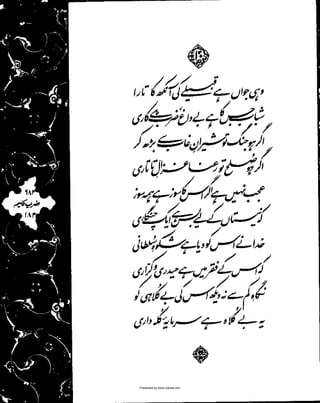 وہی جواں ہے قبیلے کی آنکھ کا تارا
شباب جس کا ہے بے داغ، ضرب ہے کاری
اگر ہو جنگ تو شیرانِ غاب سے بڑھ کر
اگر ہو صلح تو رعنا غزالِ تاتاری
عجب نہیں ہے اگر اس کا سوز ہے ہمہ سوز
کہ نیستاں کے لیے بس ہے ایک چنگاری
خدا نے اس کو دیا ہے شکوہِ سلطانی
کہ اس کے فقر میں ہے حیدری و کراری
نگاہِ کم سے نہ دیکھ اس کی بے کلاہی کو
یہ بے کلاہ ہے سرمایۂ کلہ داری
۶۸۲
ضربِ کلیم
۱۸۲
Presented by